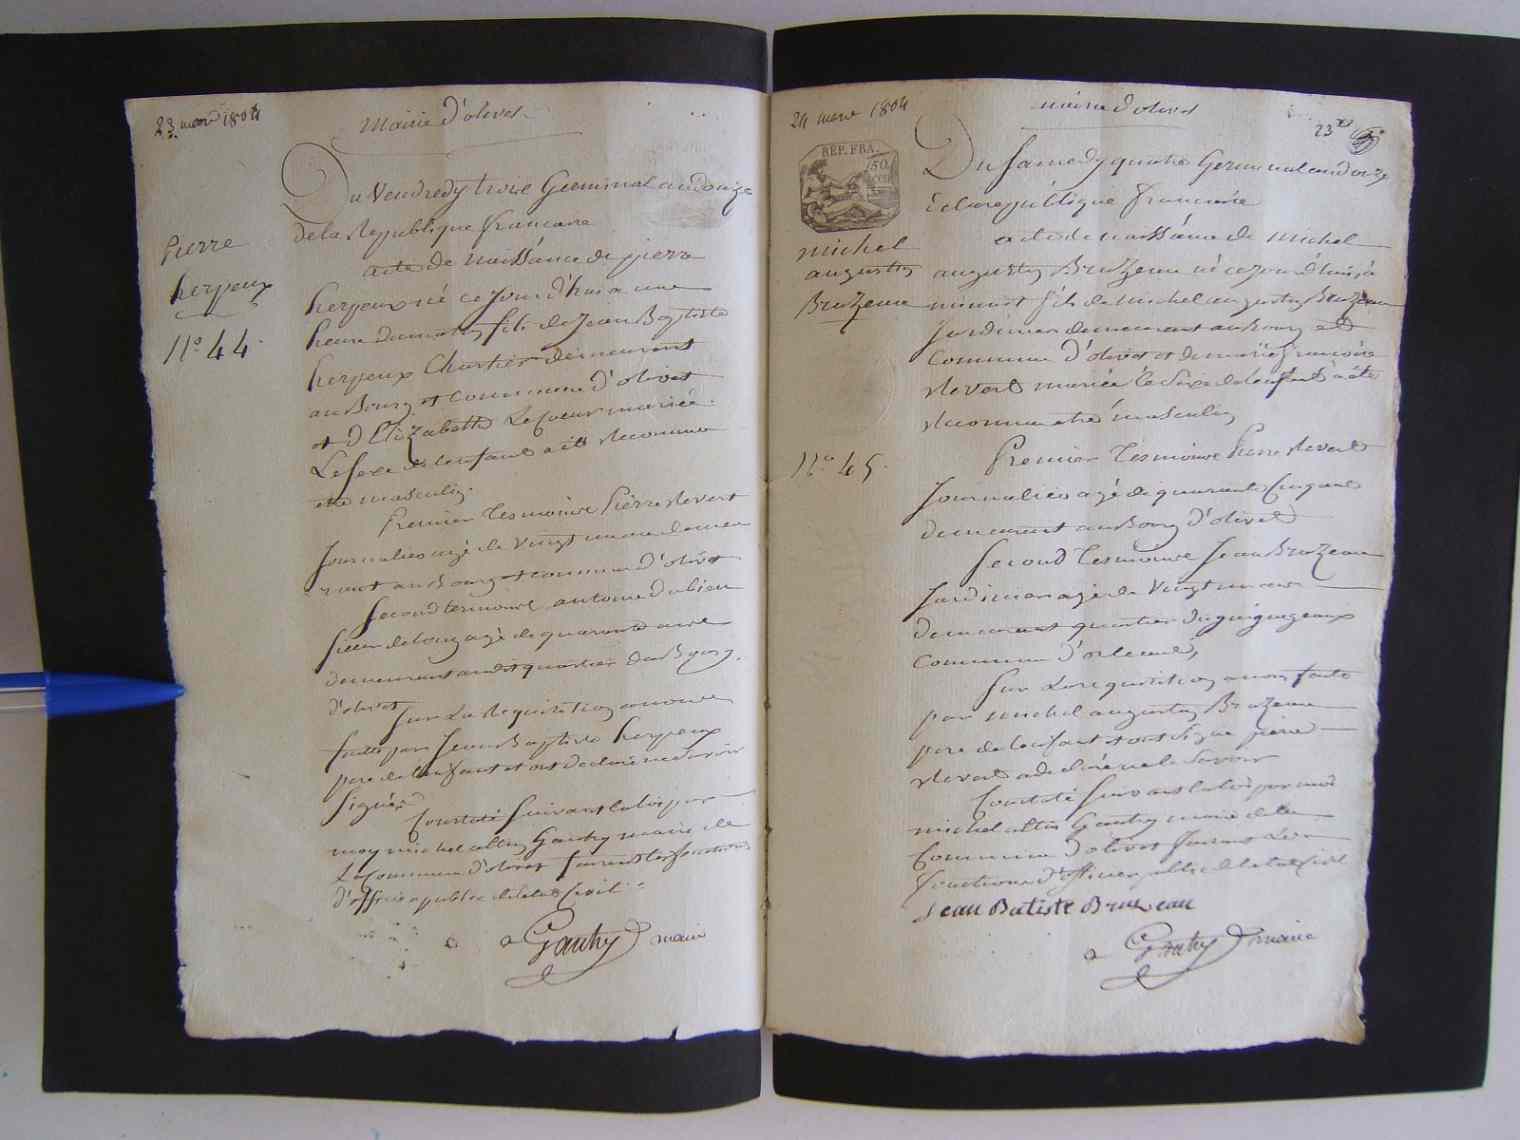 23 mars 1804
Mairie d'olivet
Du Vendredy trois Germinal an douze
de la Republique francaise
acte de naissance de pierre
herpeux né ce jour d'hui a une
heure du matin fils de Jean Baptiste
herpeux Chartier demeurant
au Bourg et commune d'olivet
et d'Elizabeth Lecoeur mariée
Le sexe de lenfant a été reconnu
etre masculin.
Premier tesmoins Pierre Revert
Journalier agé de vingt neuf demeu
rant au Bourg et commune d'olivet
Second tesmoins antoine
agé de quarante
demeurant audit quartier du Bourg
d'olivet
Sur La Requisition a nous
faitte par Jean Baptiste herpeux
pere de lenfant et ont declaré ne savoir
signér
Constaté suivant la loi par
moy michel Gauthy maire de
La Commune d'olivet faisant les fonctions
d'officier public de letat Civil
Gauthy maire
Pierre
herpeux
N° 44.
24 mars 1804
mairie d'olivet
23
REP. FRA.
50
Du Samedy quatre Germinal an douze
de la republique francaise
acte de naissance de michel
augustin Bruzeau né ce jour d'hui à
minuit fils de michel augustin Bruzeau
Jardinier demeurant au Bourg et
Commune d'olivet et de marie francoise
Revert mariée le sexe de lenfant a été
reconnu etre masculin
Premier tesmoins Pierre Revert
Journalier agé de quarante Cinq ans
demeurant au Bourg d'olivet
Second tesmoins Jean Bruzeau
Jardinier agé de vingt
demeurant quartier
Commune d'orleans
Sur la requisition a nous faitte
par michel augustin Bruzeau
pere de lenfant et ont signé pierre
Revert a declaré ne le savoir
Constaté suivant la loi par moi
michel Gauthy maire de la
Commune d'olivet faisant les
fonctions d'officier public de letat Civil
Jean Batiste Bruzeau
Gauthy maire
michel
augustin
Bruzeau
N° 45.